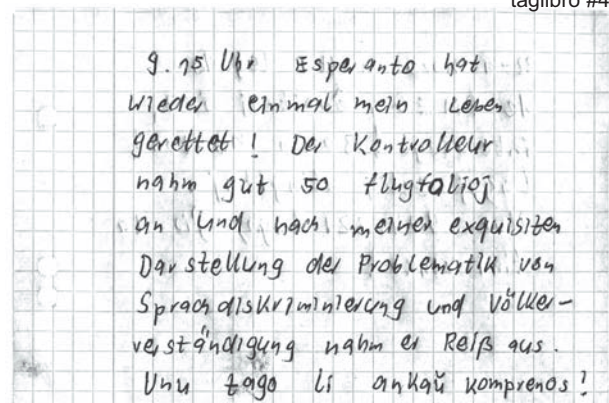 taglibro #4
9.15 Uhr Esperanto hat
wieder einmal mein Leben
gerettet! Der Kontrolleur
nahm gut 50 flugfolioj
an und nach meiner exquisiten
Darstellung der Problematik von
Sprachdiskriminierung und Völker-
verständigung nahm er Reiß aus.
Unu tago li ankaŭ komprenos!